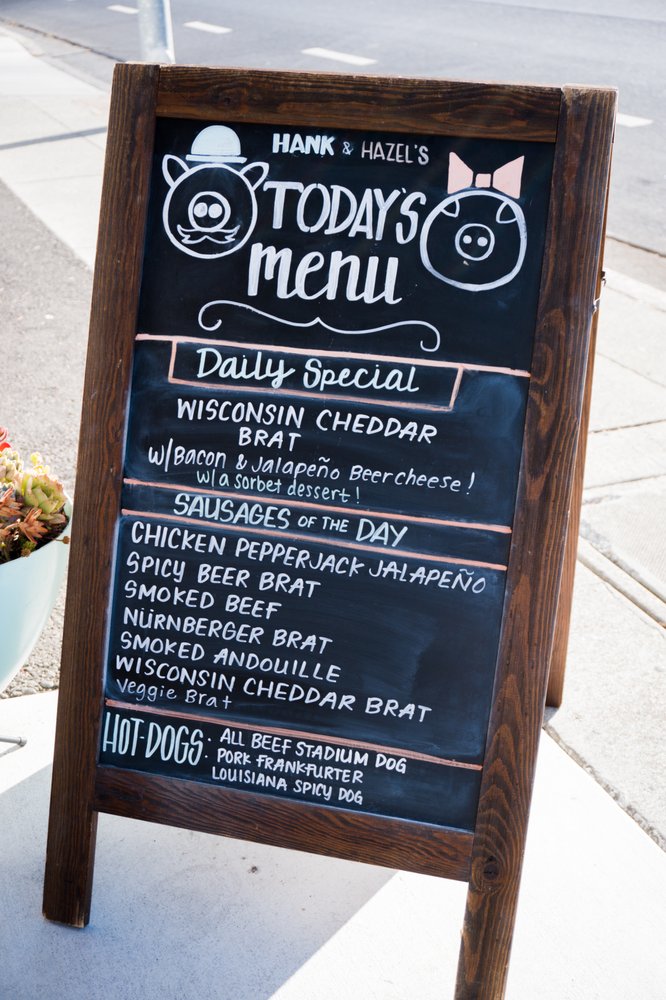 HANK & HAZEL'S
TODAY'S
menu
Daily Special
WISCONSIN CHEDDAR
BRAT
w/Bacon & Jalapeño Beercheese!
w/a sorbet dessert!
SAUSAGES OF THE DAY
CHICKEN PEPPERJACK JALAPEÑO
SPICY BEER BRAT
SMOKED BEEF
NÜRNBERGER BRAT
SMOKED ANDOUILLE
WISCONSIN CHEDDAR BRAT
Veggie Brat
HOT-DOGS: ALL BEEF STADIUM DOG
PORK FRANKFURTER
LOUISIANA SPICY DOG